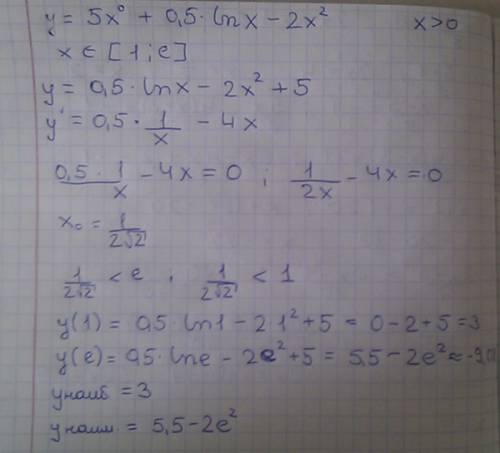 y = 5x⁰ + 0,5·lnx − 2x² x>0
x ∈ [1;e]
y = 0,5·lnx − 2x² + 5
y' = 0,5·1/x − 4x
0,5·1/x − 4x = 0 ; 1/2x − 4x = 0
x₀ = 1/2√2
1/2√2 < e ; 1/2√2 < 1
y(1) = 0,5·ln1 − 2·1² + 5 = 0 − 2 + 5 = 3
y(e) = 0,5·lne − 2e² + 5 = 5,5 − 2e² ≈
yнаиб = 3
yнаим = 5,5 − 2e²